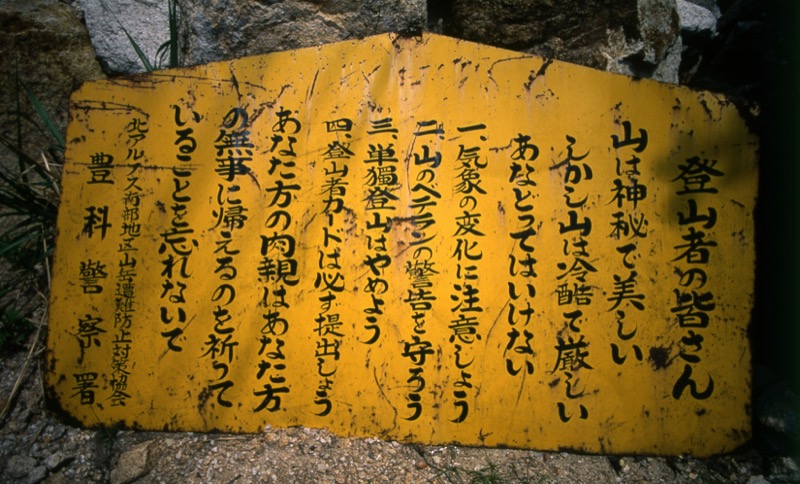 登山者の皆さん
山は神秘で美しい
しかし山は冷酷で厳しい
あなどってはいけない
一、気象の変化に注意しよう
二、山のベテランの警告を守ろう
三、単獨登山はやめよう
四、登山者カードは必ず提出しょう
あなた方の肉親はあなた方
の無事に帰えるのを祈って
いることを忘れないで
北アルプス南部地区山岳遭難防止対策協会
豊科警察署